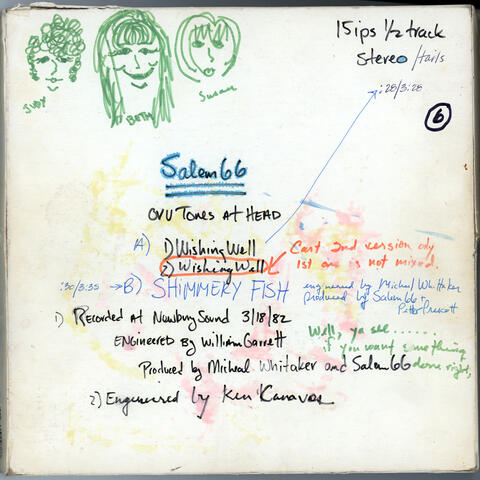 15ips 1/2 track
Stereo /tails
:28/3:28
6
Judy
BETH
Susan
Salem 66
OVU Tones at HEAD
A) 1) Wishing Well
2) Wishing Well
Cart 2nd version only
1st one is not mixed.
:30/3:35 → B) SHIMMERY FISH
engineered by Michael Whittaker
produced by Salem 66 &
1) Recorded at Newbury Sound 3/18/82
Engineered by William Garrett
Well, ya see......
if you want something
done right,
Produced by Micheal Whitaker and Salem 66
2) Engineered by Ken Kanavos